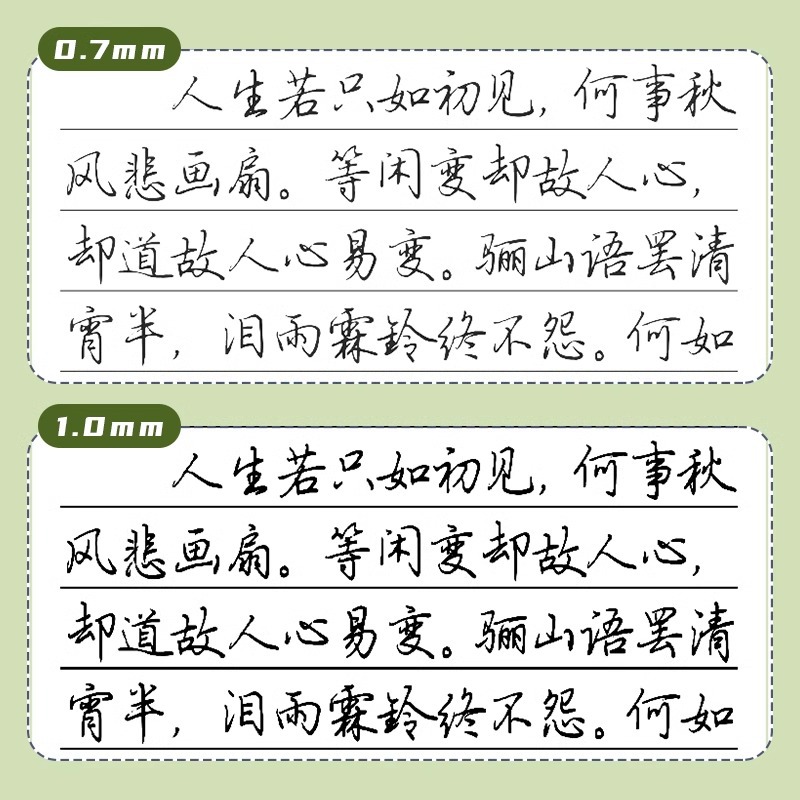 0.7mm
人生若只如初见，何事秋
风悲画扇。等闲变却故人心，
却道故人心易变。骊山语罢清
宵半，泪雨霖鈴终不怨。何如
1.0mm
人生若只如初见，何事秋
风悲画扇。等闲变却故人心，
却道故人心易变。骊山语罢清
宵半，泪雨霖鈴终不怨。何如